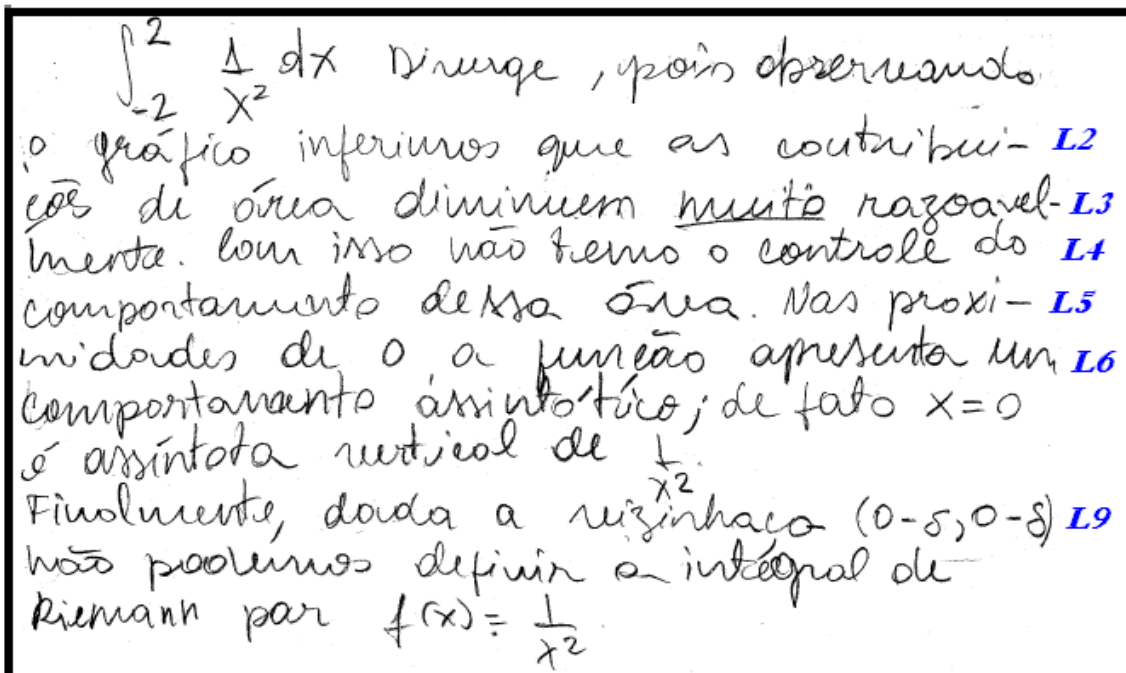 ∫_{-2}^{2} 1/x² dx Diverge, pois observando
o gráfico inferimos que as contribui- L2
ções de área diminuem muito razoavel- L3
mente. Com isso não temo o controle do L4
comportamento dessa área. Nas proxi- L5
midades de 0 a função apresenta um L6
comportamento assintótico; de fato x=0
é assíntota vertical de 1/x².
Finalmente, dada a vizinhaça (0-δ,0-δ) L9
não podemos definir a integral de
Riemann par f(x) = 1/x².